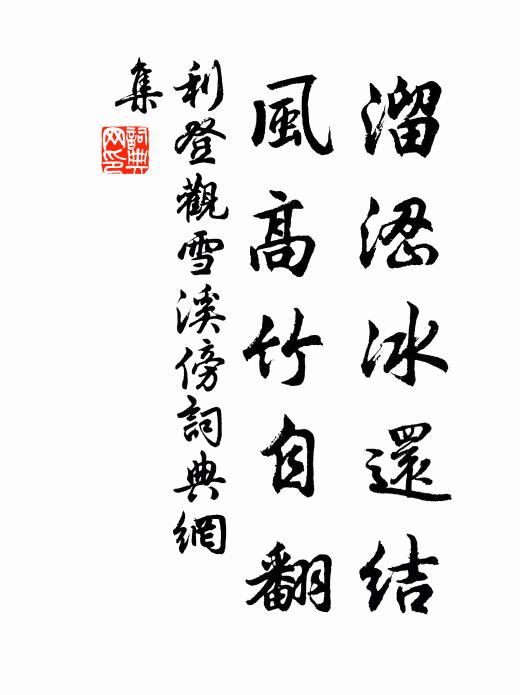 溜澀冰還結
風高竹自翻
利登觀雪溪傍詞典網
集
詞典
网印